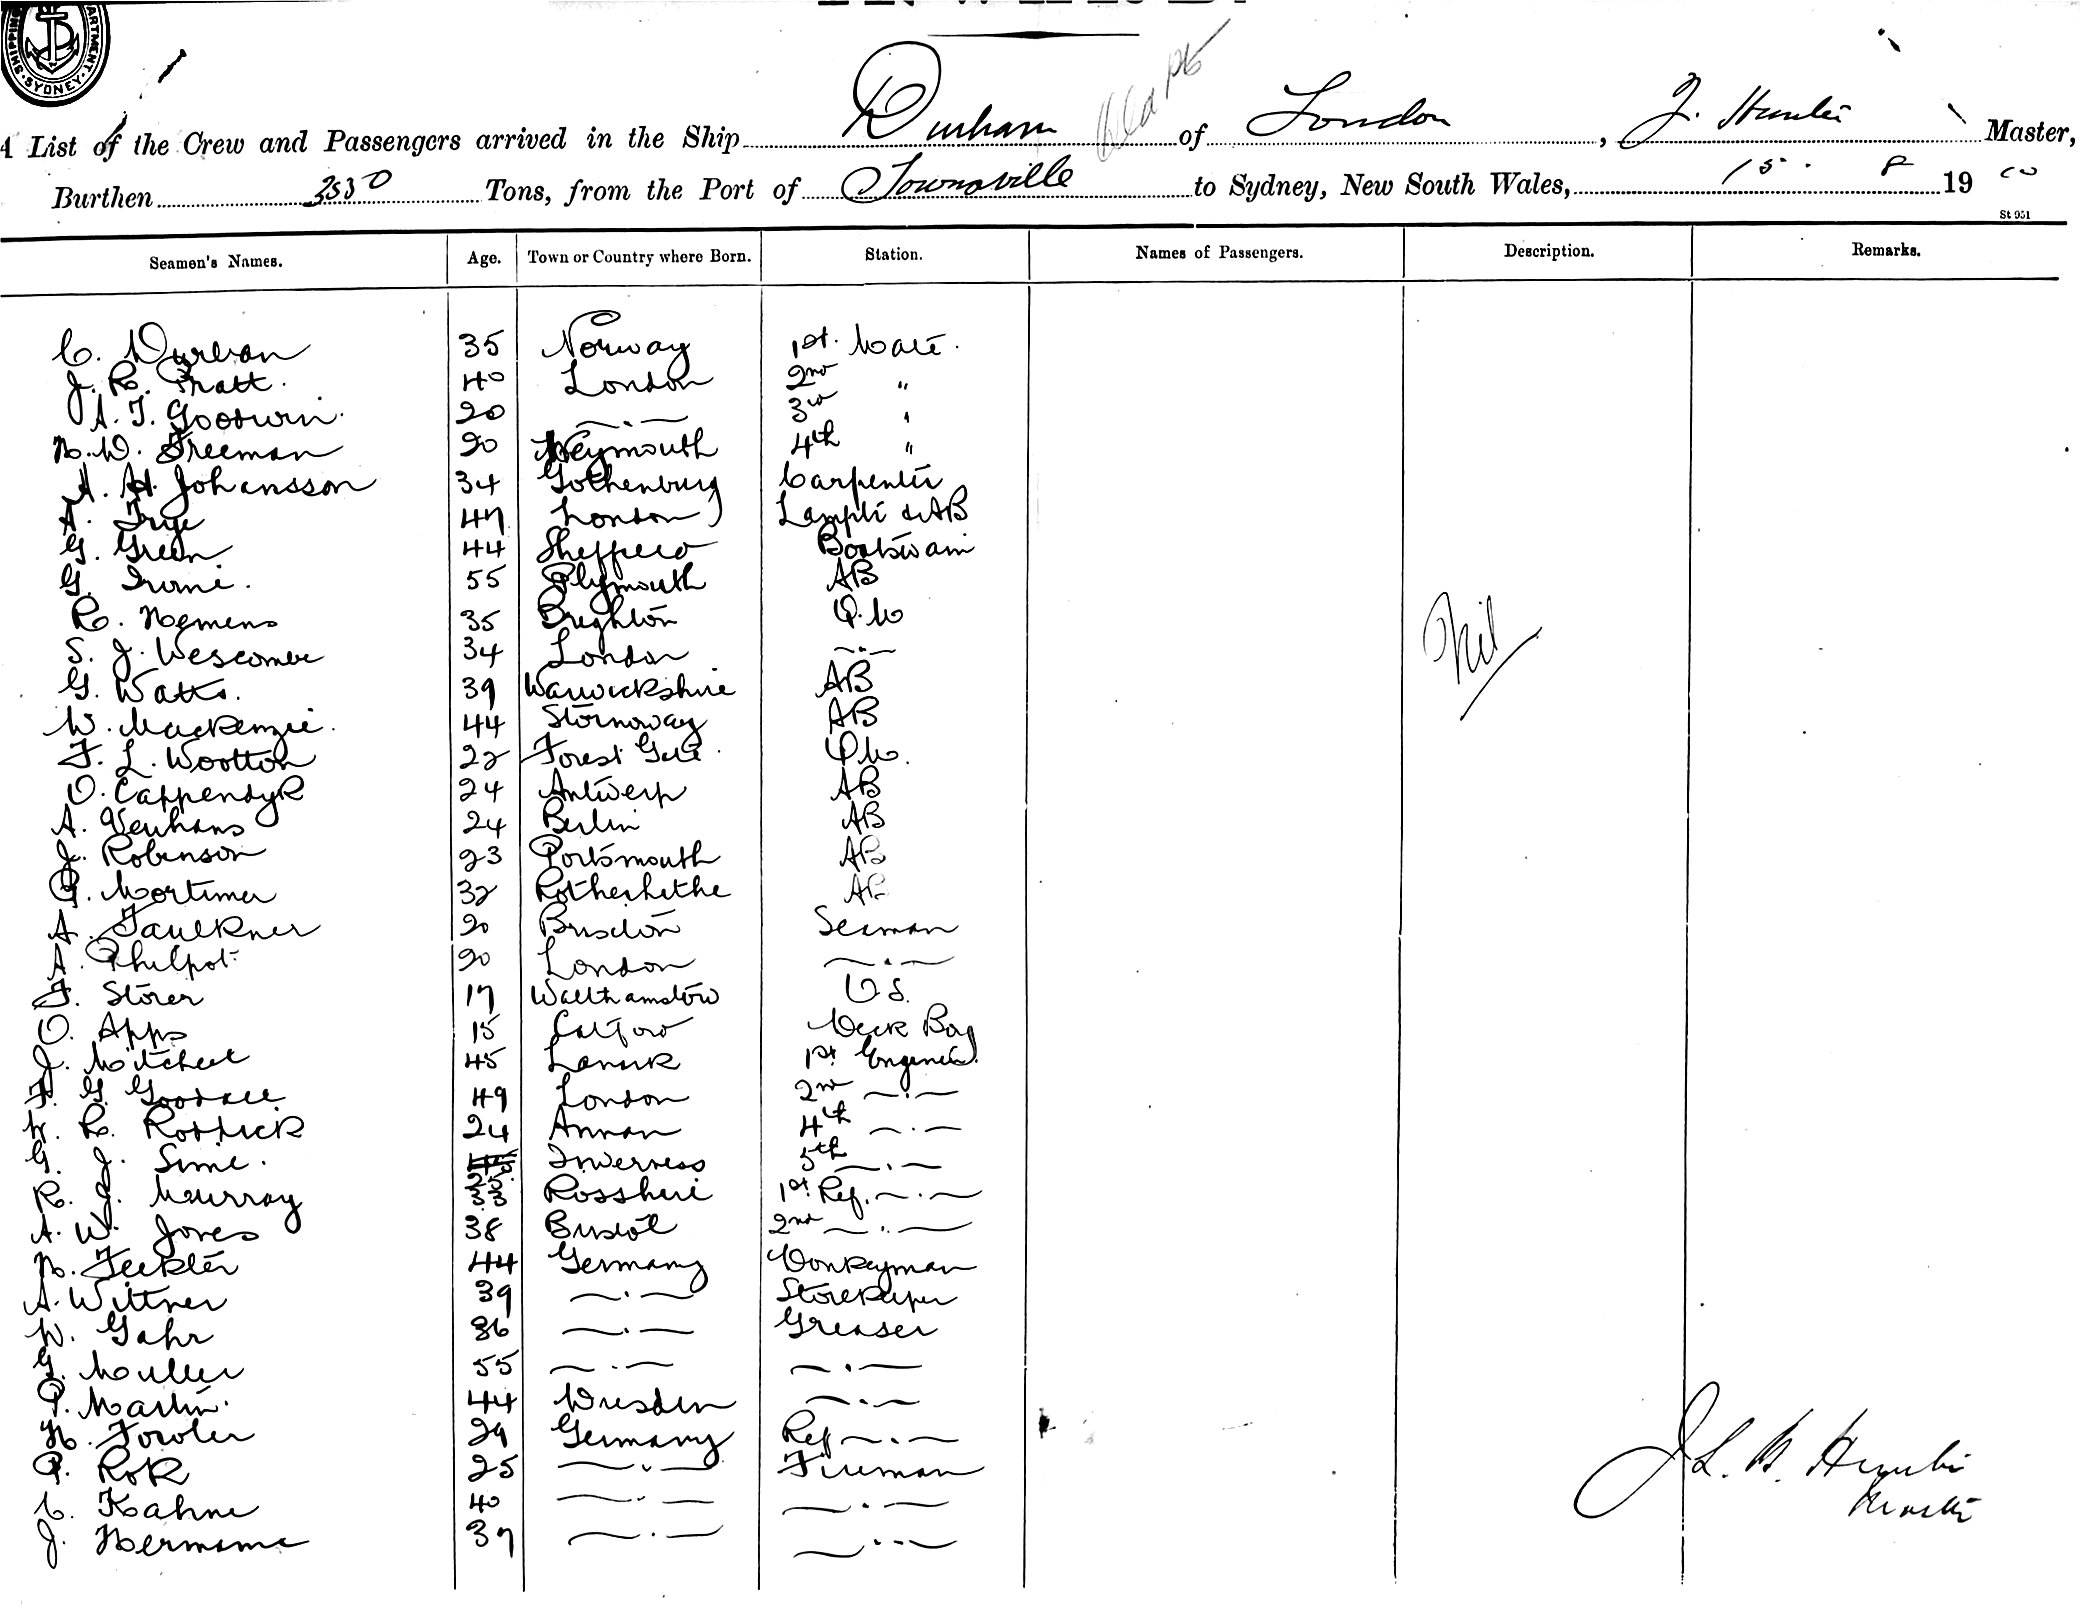 SHIPPING DEPARTMENT. SYDNEY.
A List of the Crew and Passengers arrived in the Ship Durham of London, J. Hunter Master,
Burthen 3530 Tons, from the Port of Townsville to Sydney, New South Wales, 15. 8 1900
St 951
Seamen's Names. Age. Town or Country where Born. Station. Names of Passengers. Description. Remarks.
C. Durban 35 Norway 1st. Mate.
J. R. Pratt. 40 London 2nd "
A. T. Goodwin. 20 —.— 3rd "
H. W. Freeman 20 Weymouth 4th "
A. H. Johansson 34 Gothenburg Carpenter
A. Frye 47 London Lamptr & AB
G. Green 44 Sheppero Boatswain
G. Irvine. 55 Plymouth AB
R. Hemens 35 Brighton Q.M
S. J. Wescombe 34 London —.—
G. Watts. 39 Warwickshire AB
W. Mackenzie. 44 Stornoway AB
F. L. Wootton 22 Forest Gate. QM.
O. Cappendyk 24 Antwerp AB
A. Venhans 24 Berlin AB
J. Robinson 23 Portsmouth AB
G. Mortimer 32 Rotherhethe AB
A. Faulkner 20 Brixton Seaman
A. Philpot. 20 London —.—
F. Storer 17 Walthamstow OS.
O. Apps 15 Catford Deck Boy
J. Mitchell 45 Lanark 1st Engineer.
F. G. Goodall 49 London 2nd —.—
W. R. Roddick 24 Annan 4th —.—
G. J. Sime. 25 Inverness 5th —.—
R. J. Murray 33 Rosshire 1st Ref. —.—
A. W. Jones 38 Bristol 2nd —.—
H. Feckter 44 Germany Donkeyman
A. Wittner 39 —.— Storekeeper
W. Gahr 36 —.— Greaser
G. Muller 55 —.— —.—
P. Martin. 44 Dresden —.—
H. Fowler 29 Germany Ref —.—
P. Rok 25 —.— Fireman
C. Kahne 40 —.— —.—
J. Hermann 37 —.— —.—
Nil
J. L. B. Hunter
Master